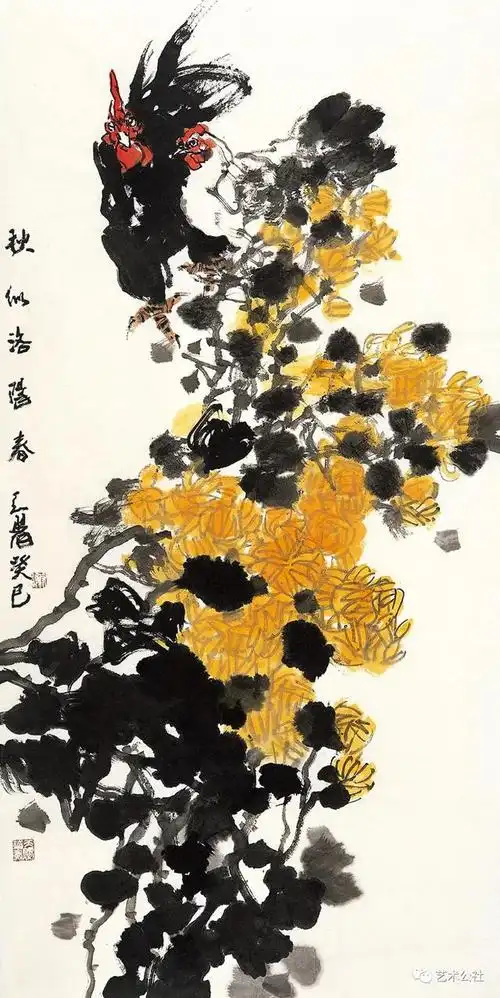 秋似洛陽春 王晨 癸巳
艺术公社